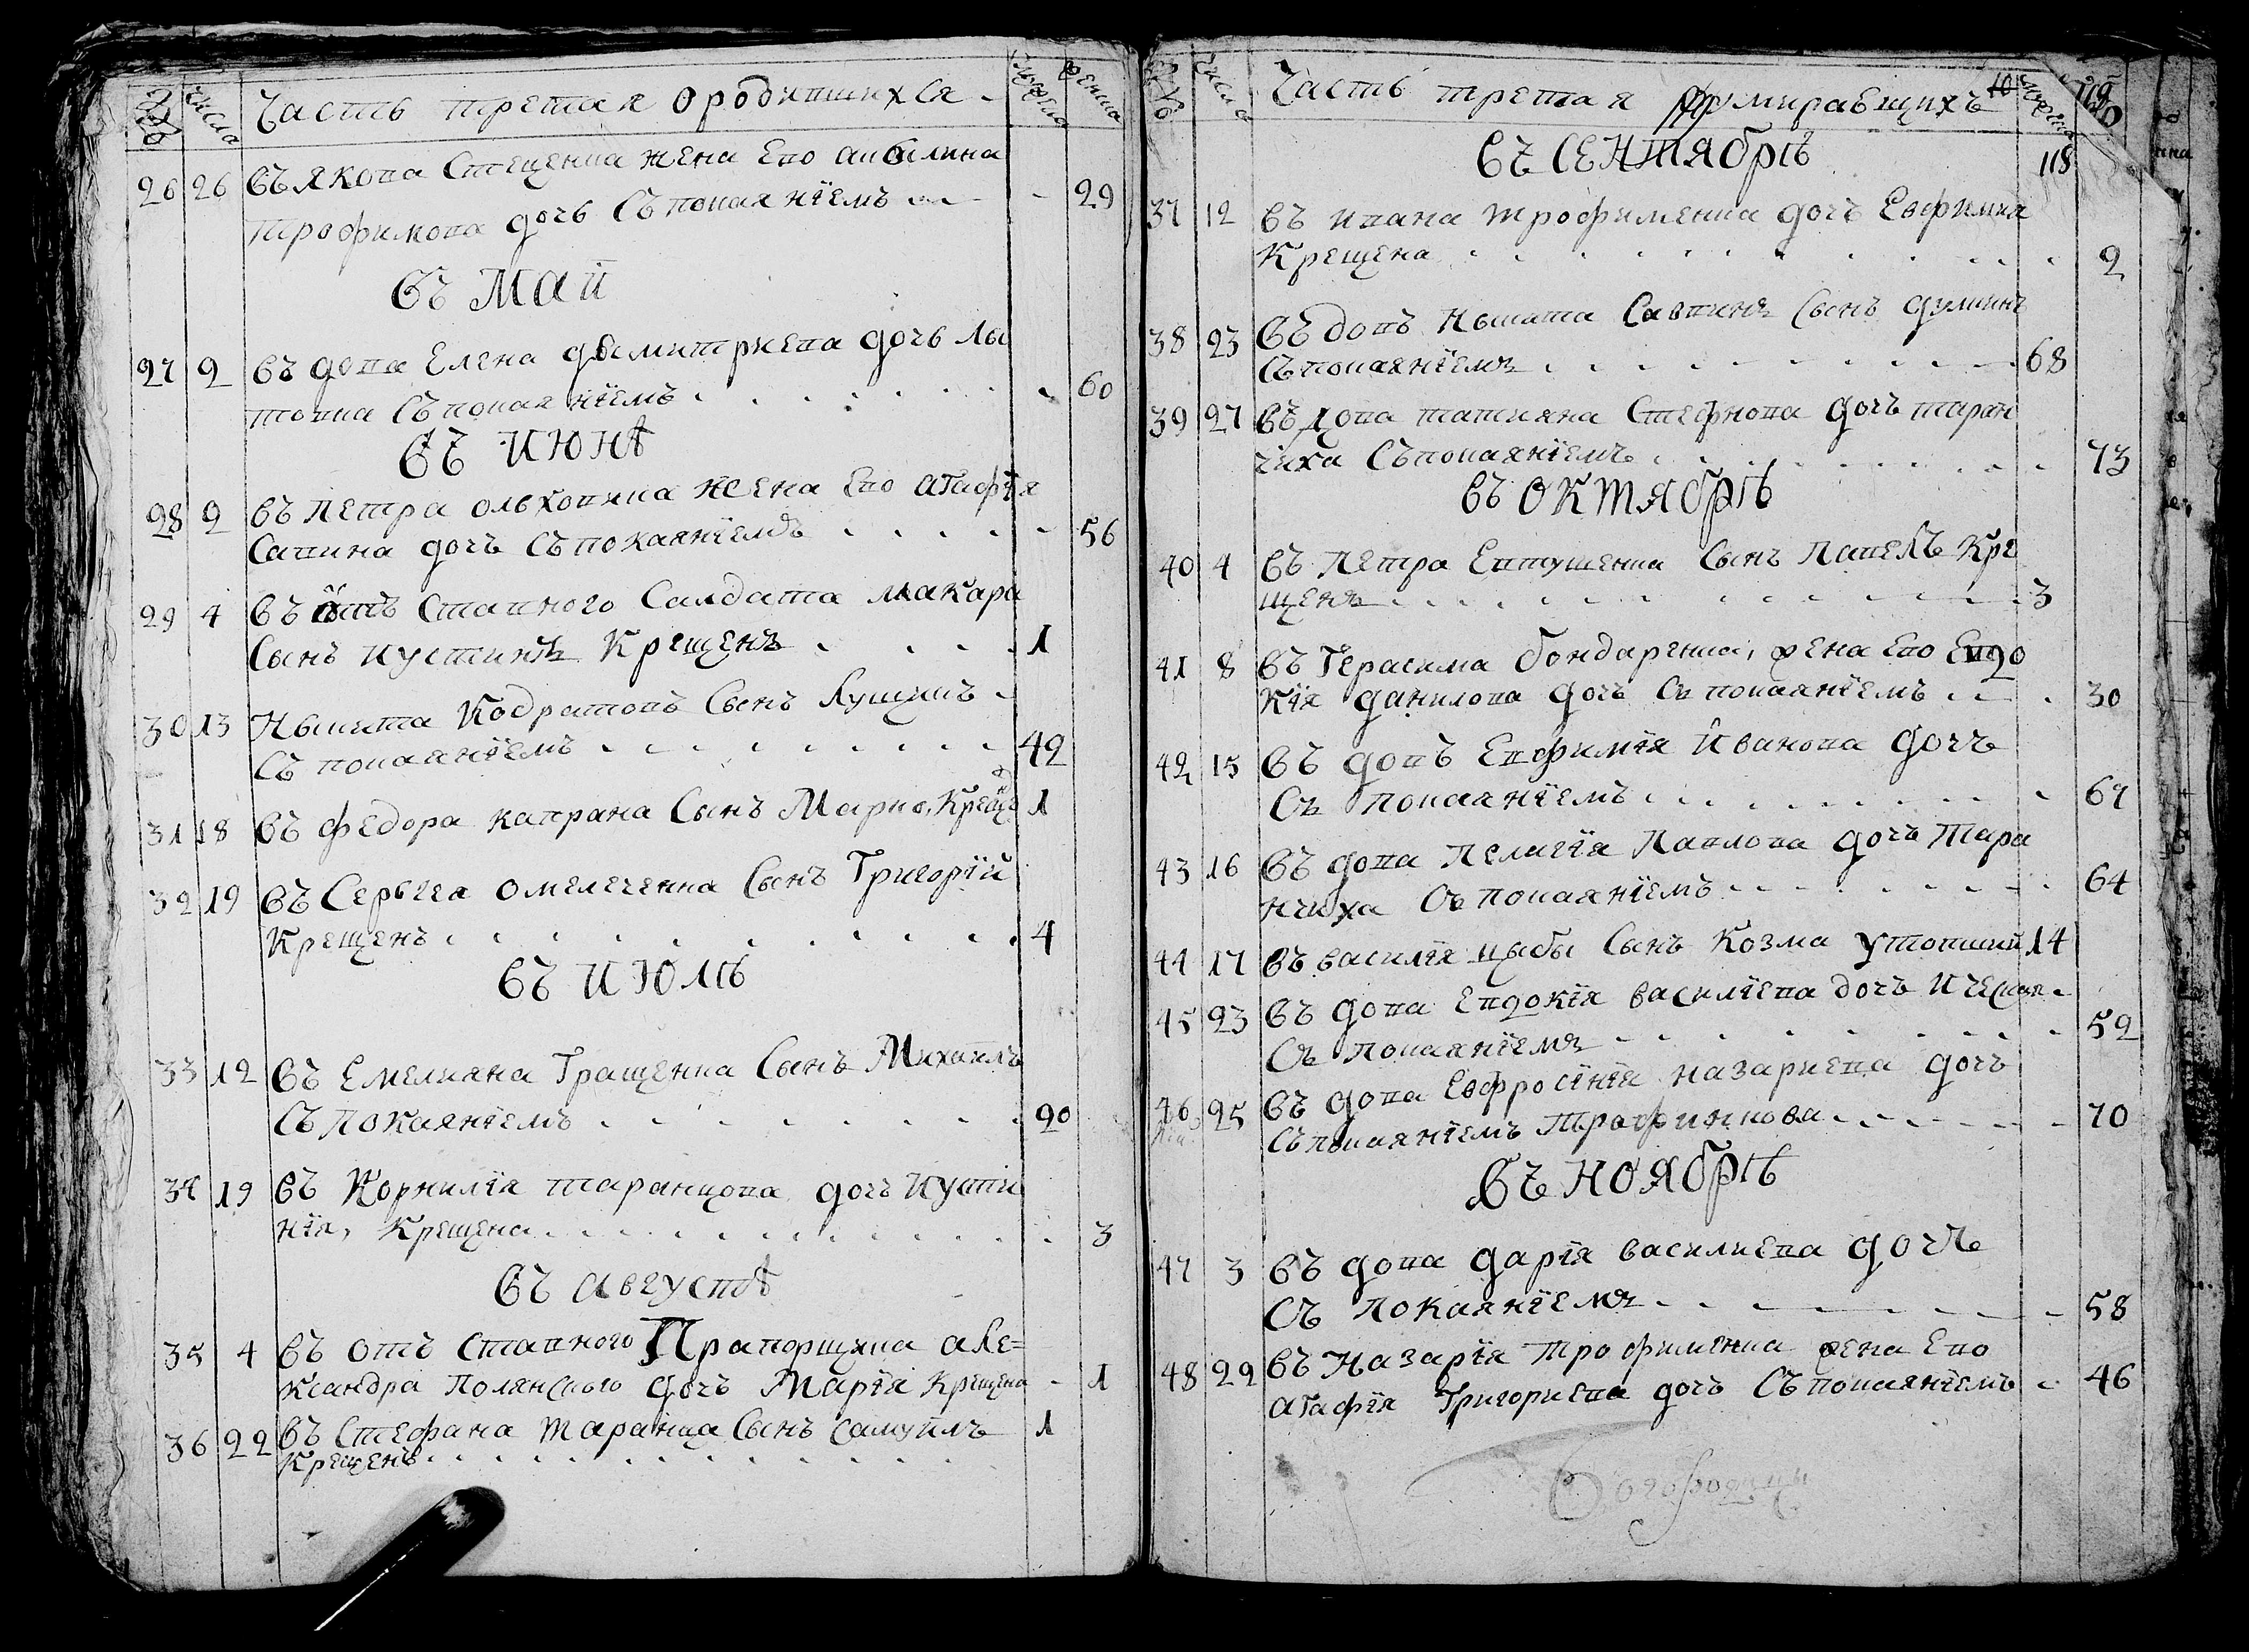 №
числа
Часть третая о родившихся
мужеска
женска
26 26 Въ Якова Стеценка жена Его акилина
трофимова дочь Съ покаянїемъ 29
Въ Маи
27 2 Въ дова Елена дьмитриева дочь лы
товка Съ покаянїемъ 60
Въ июнѣ
28 2 Въ Петра ольховика жена Его агафїя
Савина дочь Съ покаянїемъ 56
29 4 Въ отъ Ставного Салдата макара
Сынъ иустинъ Крещенъ 1
30 13 Никита Кодратовъ Сынъ
Съ покаянїемъ 42
31 18 Въ федора каправа Сынъ Марко, Крещенъ 1
32 19 Въ Сергѣя омелеченка Сынъ Григорїй
Крещенъ 4
Въ июлѣ
33 12 Въ Емелияна Гращенка Сынъ Михаилъ
Съ покаянїемъ 20
34 19 Въ Корнилїя таранцова дочь иусти
нїя, Крещена 3
Въ августѣ
35 4 Въ отъ Ставного Прапорщика але=
ксандра Полянского дочь Марїя Крещена 1
36 22 Въ Стефана Таранца Сынъ Самуилъ 1
Крещенъ
№
числа
Часть третая умиравщихъ
мужеска
118
Въ Сентябрѣ
37 12 Въ ивана трофименка дочь Евфимия
Крещена 2
38 23 Въ довъ Никита Саввинъ Сынъ
Съ покаянїемъ 68
39 27 Въ дова татияна Стефнова дочь таран
чиха Съ покаянїемъ 73
Въ октябрѣ
40 4 Въ Петра Евтушенка Сынъ Павелъ Кре
щенъ 3
41 8 Въ Герасима бондаренка, жена Его Евдо
кїя данилова дочь Съ покаянїемъ 30
42 15 Въ довъ Евфимїя Иванова дочь
Съ покаянїемъ 67
43 16 Въ дова Пелагїя Павлова дочь Тара
нчиха Съ покаянїемъ 64
44 17 Въ василїя цыбы Сынъ Козма утопший 14
45 23 Въ дова Евдокїя василїева дочь
Съ покаянїемъ 52
46 25 Въ дова Евфросїнїя назариева дочь
Съ покаянїемъ 70
Въ ноябрѣ
47 3 Въ дова дарїя василиева дочь
Съ покаянїемъ 58
48 22 Въ Назарїя трофименка жена Его
агафїя Григориева дочь Съ покаянїемъ 46